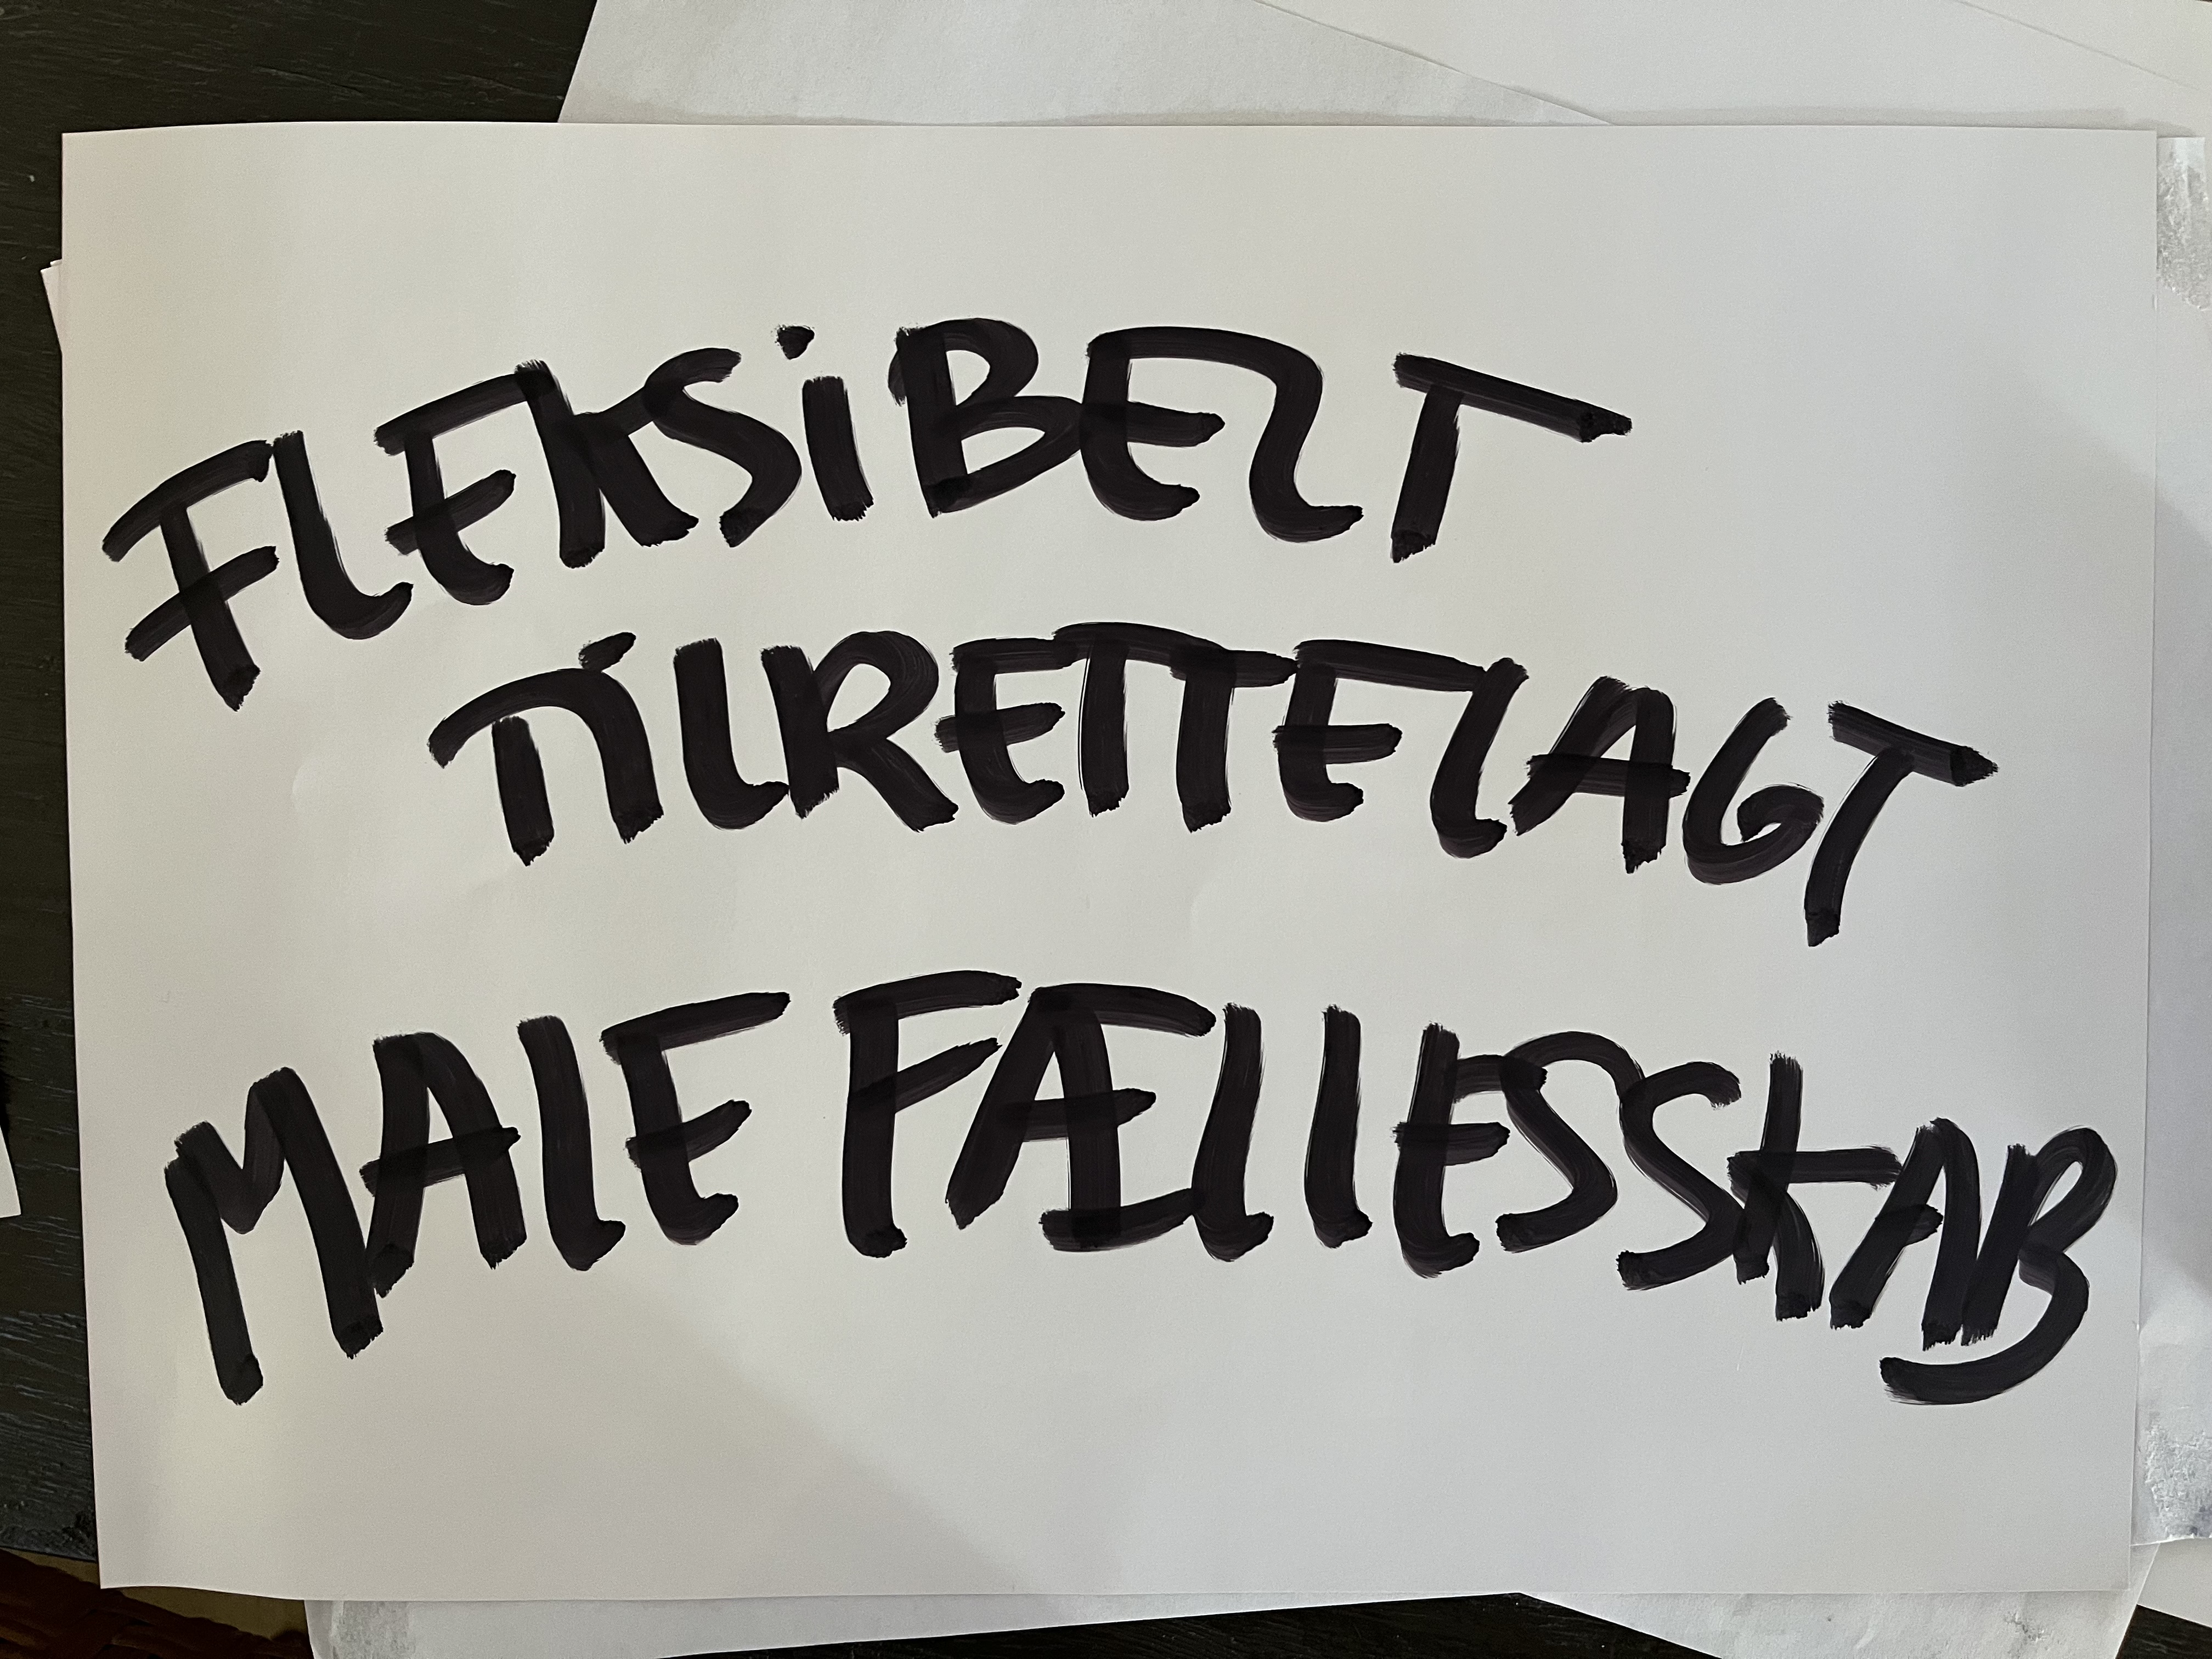 FLEKSiBELT
TiLRETTELAGT
MALE FÆLLESSKAB